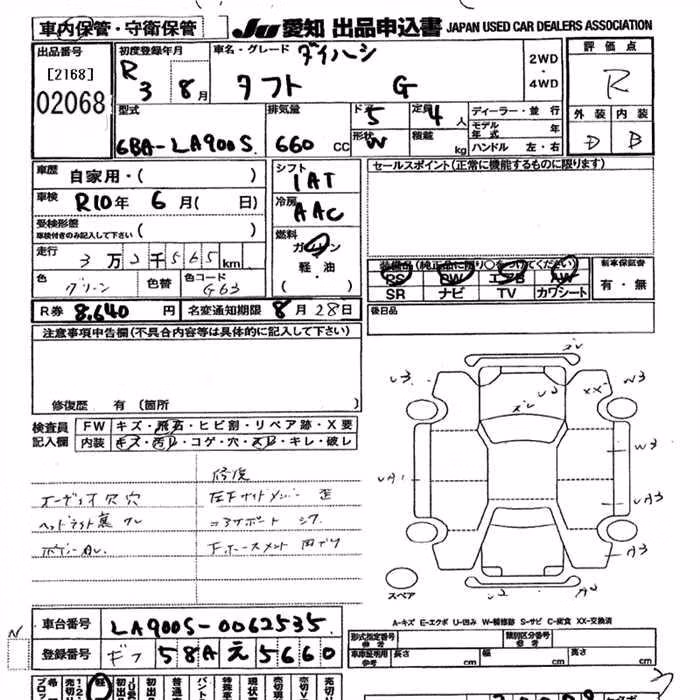 車内保管・守衛保管 JU 愛知 出品申込書 JAPAN USED CAR DEALERS ASSOCIATION
出品番号 [2168] 02068
初度登録年月 R 3 8月
車名・グレード ダイハツ タフト G
2WD・4WD
評価点 R
外装 内装
D B
型式 6BA-LA900S
排気量 660 CC
ドア 5 定員 4人
形状 W 積載 kg
ディーラー・並行
モデル年式 年
ハンドル 左・右
車歴 自家用・( )
車検 R10年 6月( 日)
受検形態 車検付きのみ記入して下さい ( )
走行 3万2千565km
色 グリーン 色替 色コード G63
シフト IAT
冷房 AAC
燃料 ガソリン 軽・油 ( )
セールスポイント(正常に機能するものに限ります)
装備品(純正品に限り○をつけてください) 新車保証書
PS PW エアB AW 有・無
SR ナビ TV カワシート
後日品
R券 8,640円 名変通知期限 8月28日
注意事項申告欄(不具合内容等は具体的に記入して下さい)
修復歴 有 (箇所 )
検査員記入欄 FW キズ・飛石・ヒビ割・リペア跡・X要
内装 キズ・汚レ・コゲ・穴・スレ・キレ・破レ
修復
オーディオ穴穴 左Fサイドメンバー 歪
コアサポート
U3 XX W3
W3
UA1 UA3
A3
U2 A2
スペア
A-キズ E-エクボ U-凹み W-補修跡 S-サビ C-腐食 XX-交換済
車台番号 LA900S-0062535
登録番号 ギフ 58A え 5660
形式指定番号 参考 類別区分番号 参考
車庫証明用 参考 長さ cm 幅 cm 高さ cm